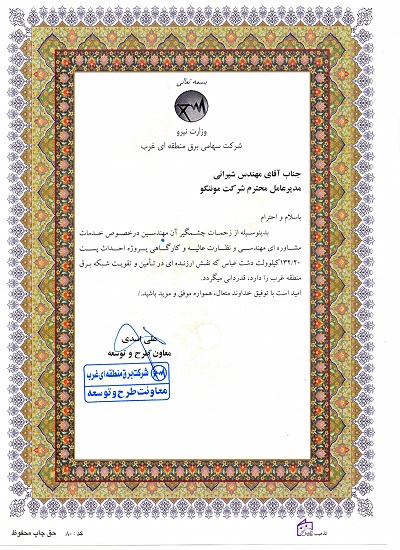 بسمه تعالی
وزارت نیرو
شرکت سهامی برق منطقه ای غرب
جناب آقای مهندس شیرانی
مدیرعامل محترم شرکت موننکو
باسلام و احترام
بدینوسیله از زحمات چشمگیر آن مهندسین درخصوص خدمات
مشاوره ای مهندسی و نظارت عالیه و کارگاهی پروژه احداث پست
۱۳۲/۲۰کیلوولت دشت عباس که نقش ارزنده ای در تأمین و تقویت شبکه برق
منطقه غرب را دارد، قدردانی میگردد.
امید است با توفیق خداوند متعال، همواره موفق و موید باشید./
علی اسدی
معاون طرح و توسعه
شرکت برق منطقه ای غرب
معاونت طرح و توسعه
کد : ۸۰ حق چاپ محفوظ